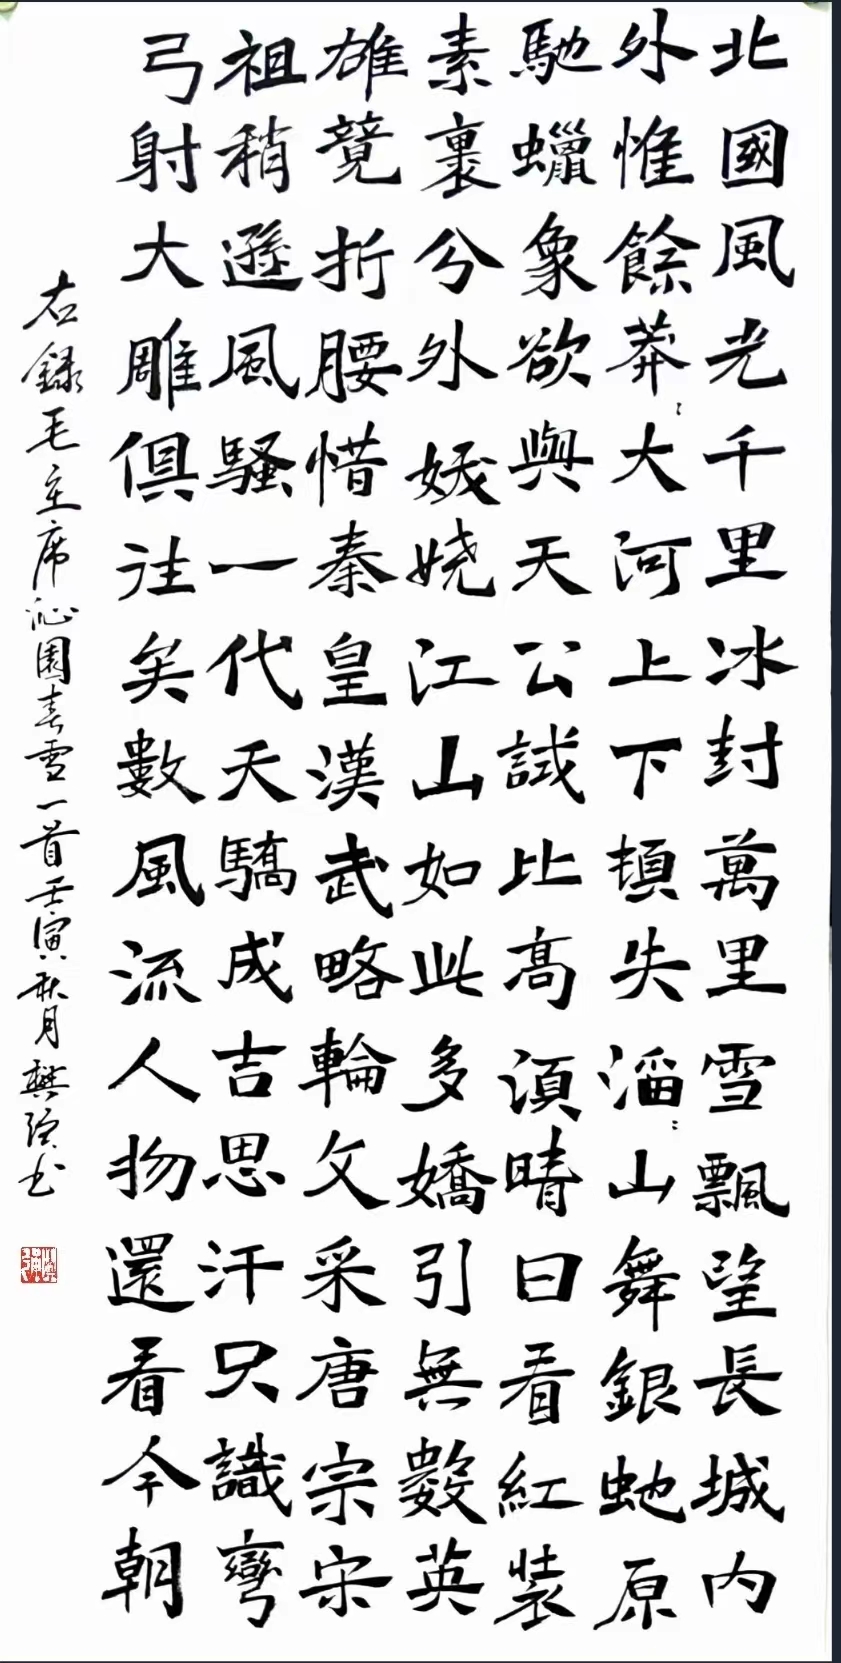 北國風光千里冰封萬里雪飄望長城內
外惟餘莽〻大河上下頓失滔〻山舞銀虵原
馳蠟象欲與天公試比高須晴日看紅裝
素裹分外娥嬈江山如此多嬌引無數英
雄竟折腰惜秦皇漢武略輪文采唐宗宋
祖稍遜風騷一代天驕成吉思汗只識彎
弓射大雕俱往矣數風流人物還看今朝
右錄毛主席沁園春雪一首壬寅秋月樊强书